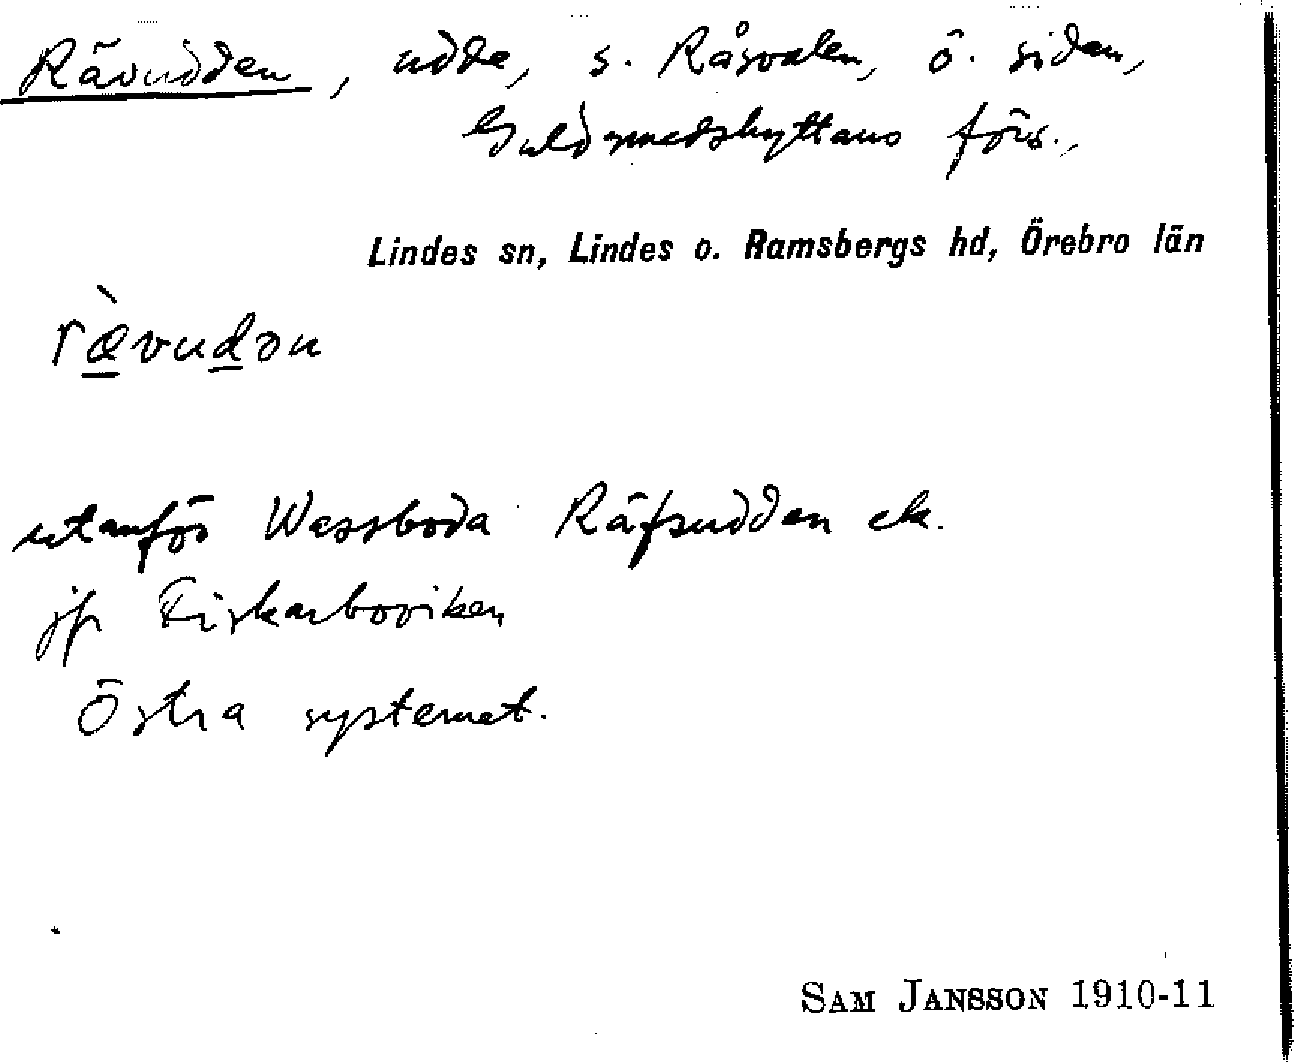 Rävudden, udde, s. Råsvalen, ö. sidan,
Guldsmedshyttans förs.,
Lindes sn, Lindes o. Ramsbergs hd, Örebro län
rævudən
utanför Wassboda Räfsudden ek.
jfr Fiskarboviken
Östra systemet.
SAM JANSSON 1910-11